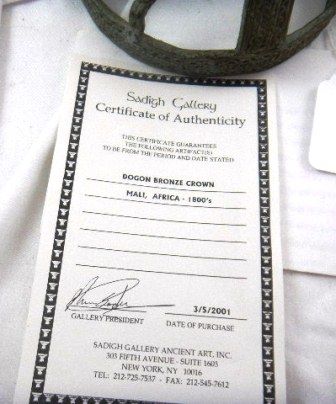 Sadigh Gallery
Certificate of Authenticity
THIS CERTIFICATE GUARANTEES
THE FOLLOWING ARTIFACT(S)
TO BE FROM THE PERIOD AND DATE STATED
DOGON BRONZE CROWN
MALI, AFRICA - 1800's
3/5/2001
GALLERY PRESIDENT DATE OF PURCHASE
SADIGH GALLERY ANCIENT ART, INC.
303 FIFTH AVENUE - SUITE 1603
NEW YORK, NY 10016
TEL: 212-725-7537 - FAX: 212-545-7612